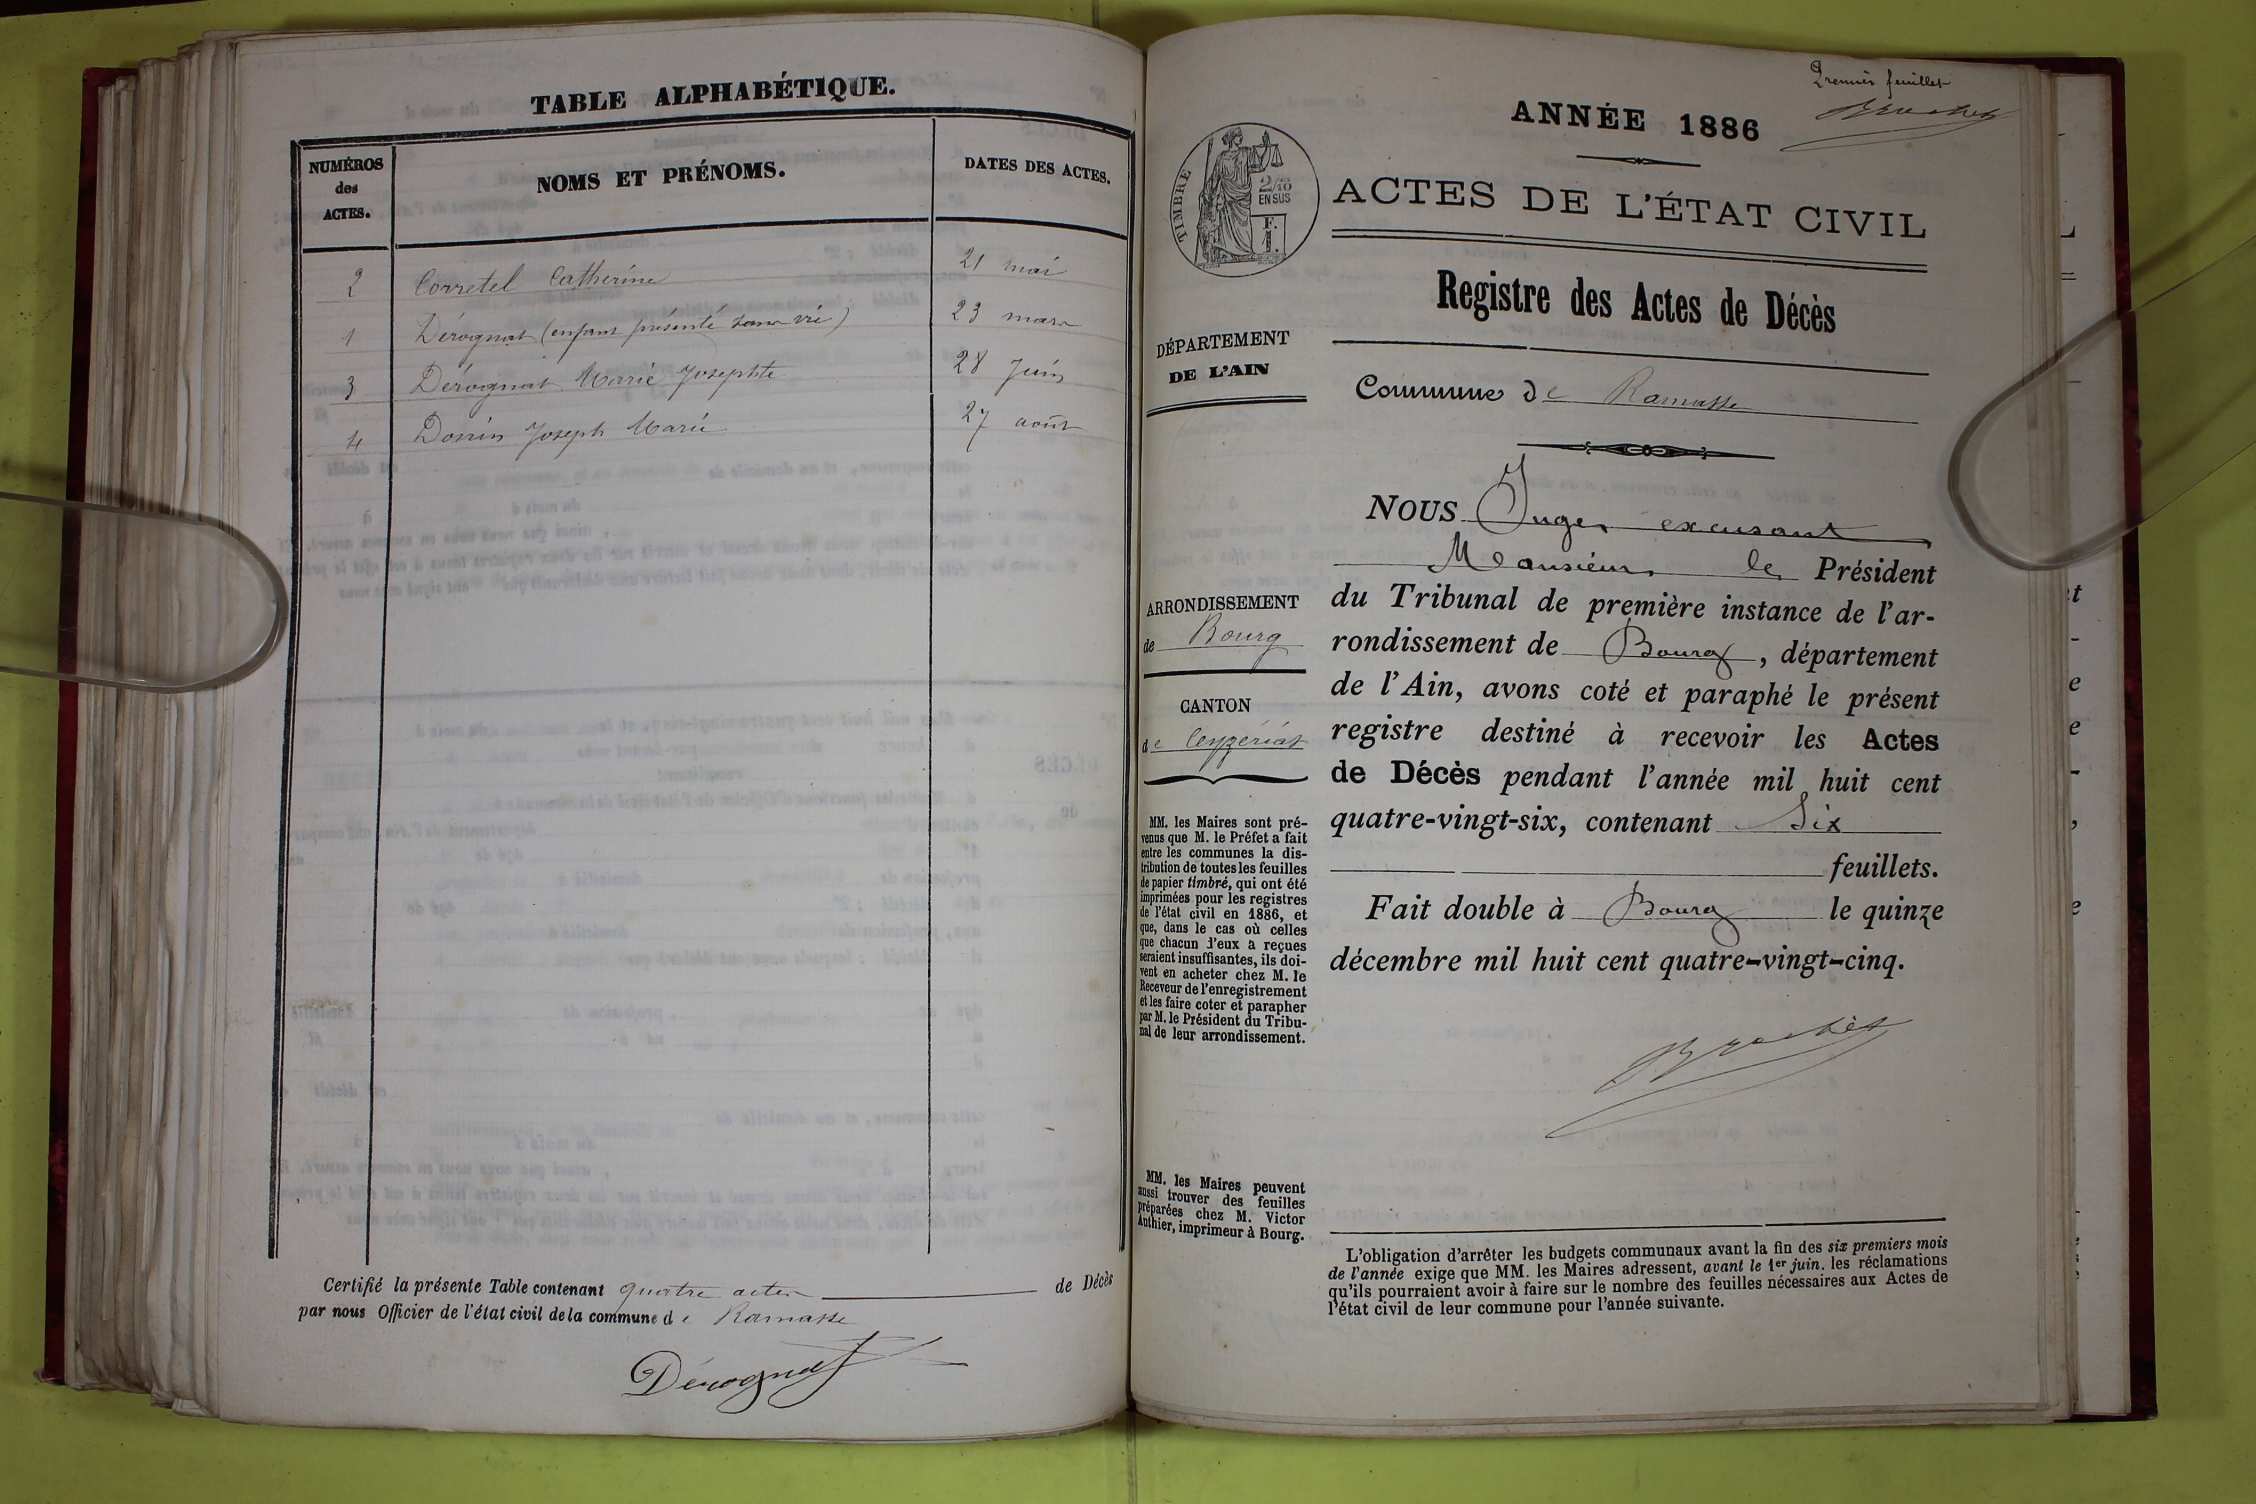 TABLE ALPHABÉTIQUE.
NUMÉROS
des
ACTES.
NOMS ET PRÉNOMS.
DATES DES ACTES.
2 Corretel Catherine 21 mai
1 Dérognat (enfant présenté sans vie) 23 mars
3 Dérognat Marie Josephte 28 Juin
4 Donin Joseph Marie 27 août
Certifié la présente Table contenant quatre actes de Décès
par nous Officier de l'état civil de la commune de Ramasse
Dérognat
Premier feuillet
Brochet
ANNÉE 1886
TIMBRE
2/10
EN SUS
F.
1.
ACTES DE L'ÉTAT CIVIL
Registre des Actes de Décès
DÉPARTEMENT
DE L'AIN
Commune de Ramasse
ARRONDISSEMENT
de Bourg
CANTON
de Ceyzériat
MM. les Maires sont pré-
venus que M. le Préfet a fait
entre les communes la dis-
tribution de toutes les feuilles
de papier timbré, qui ont été
imprimées pour les registres
de l'état civil en 1886, et
que, dans le cas où celles
que chacun d'eux a reçues
seraient insuffisantes, ils doi-
vent en acheter chez M. le
Receveur de l'enregistrement
et les faire coter et parapher
par M. le Président du Tribu-
nal de leur arrondissement.
MM. les Maires peuvent
aussi trouver des feuilles
préparées chez M. Victor
Authier, imprimeur à Bourg.
NOUS Juge, excusant
Monsieur le Président
du Tribunal de première instance de l'ar-
rondissement de Bourg, département
de l'Ain, avons coté et paraphé le présent
registre destiné à recevoir les Actes
de Décès pendant l'année mil huit cent
quatre-vingt-six, contenant Six
feuillets.
Fait double à Bourg le quinze
décembre mil huit cent quatre-vingt-cinq.
Brochet
L'obligation d'arrêter les budgets communaux avant la fin des six premiers mois
de l'année exige que MM. les Maires adressent, avant le 1er juin. les réclamations
qu'ils pourraient avoir à faire sur le nombre des feuilles nécessaires aux Actes de
l'état civil de leur commune pour l'année suivante.